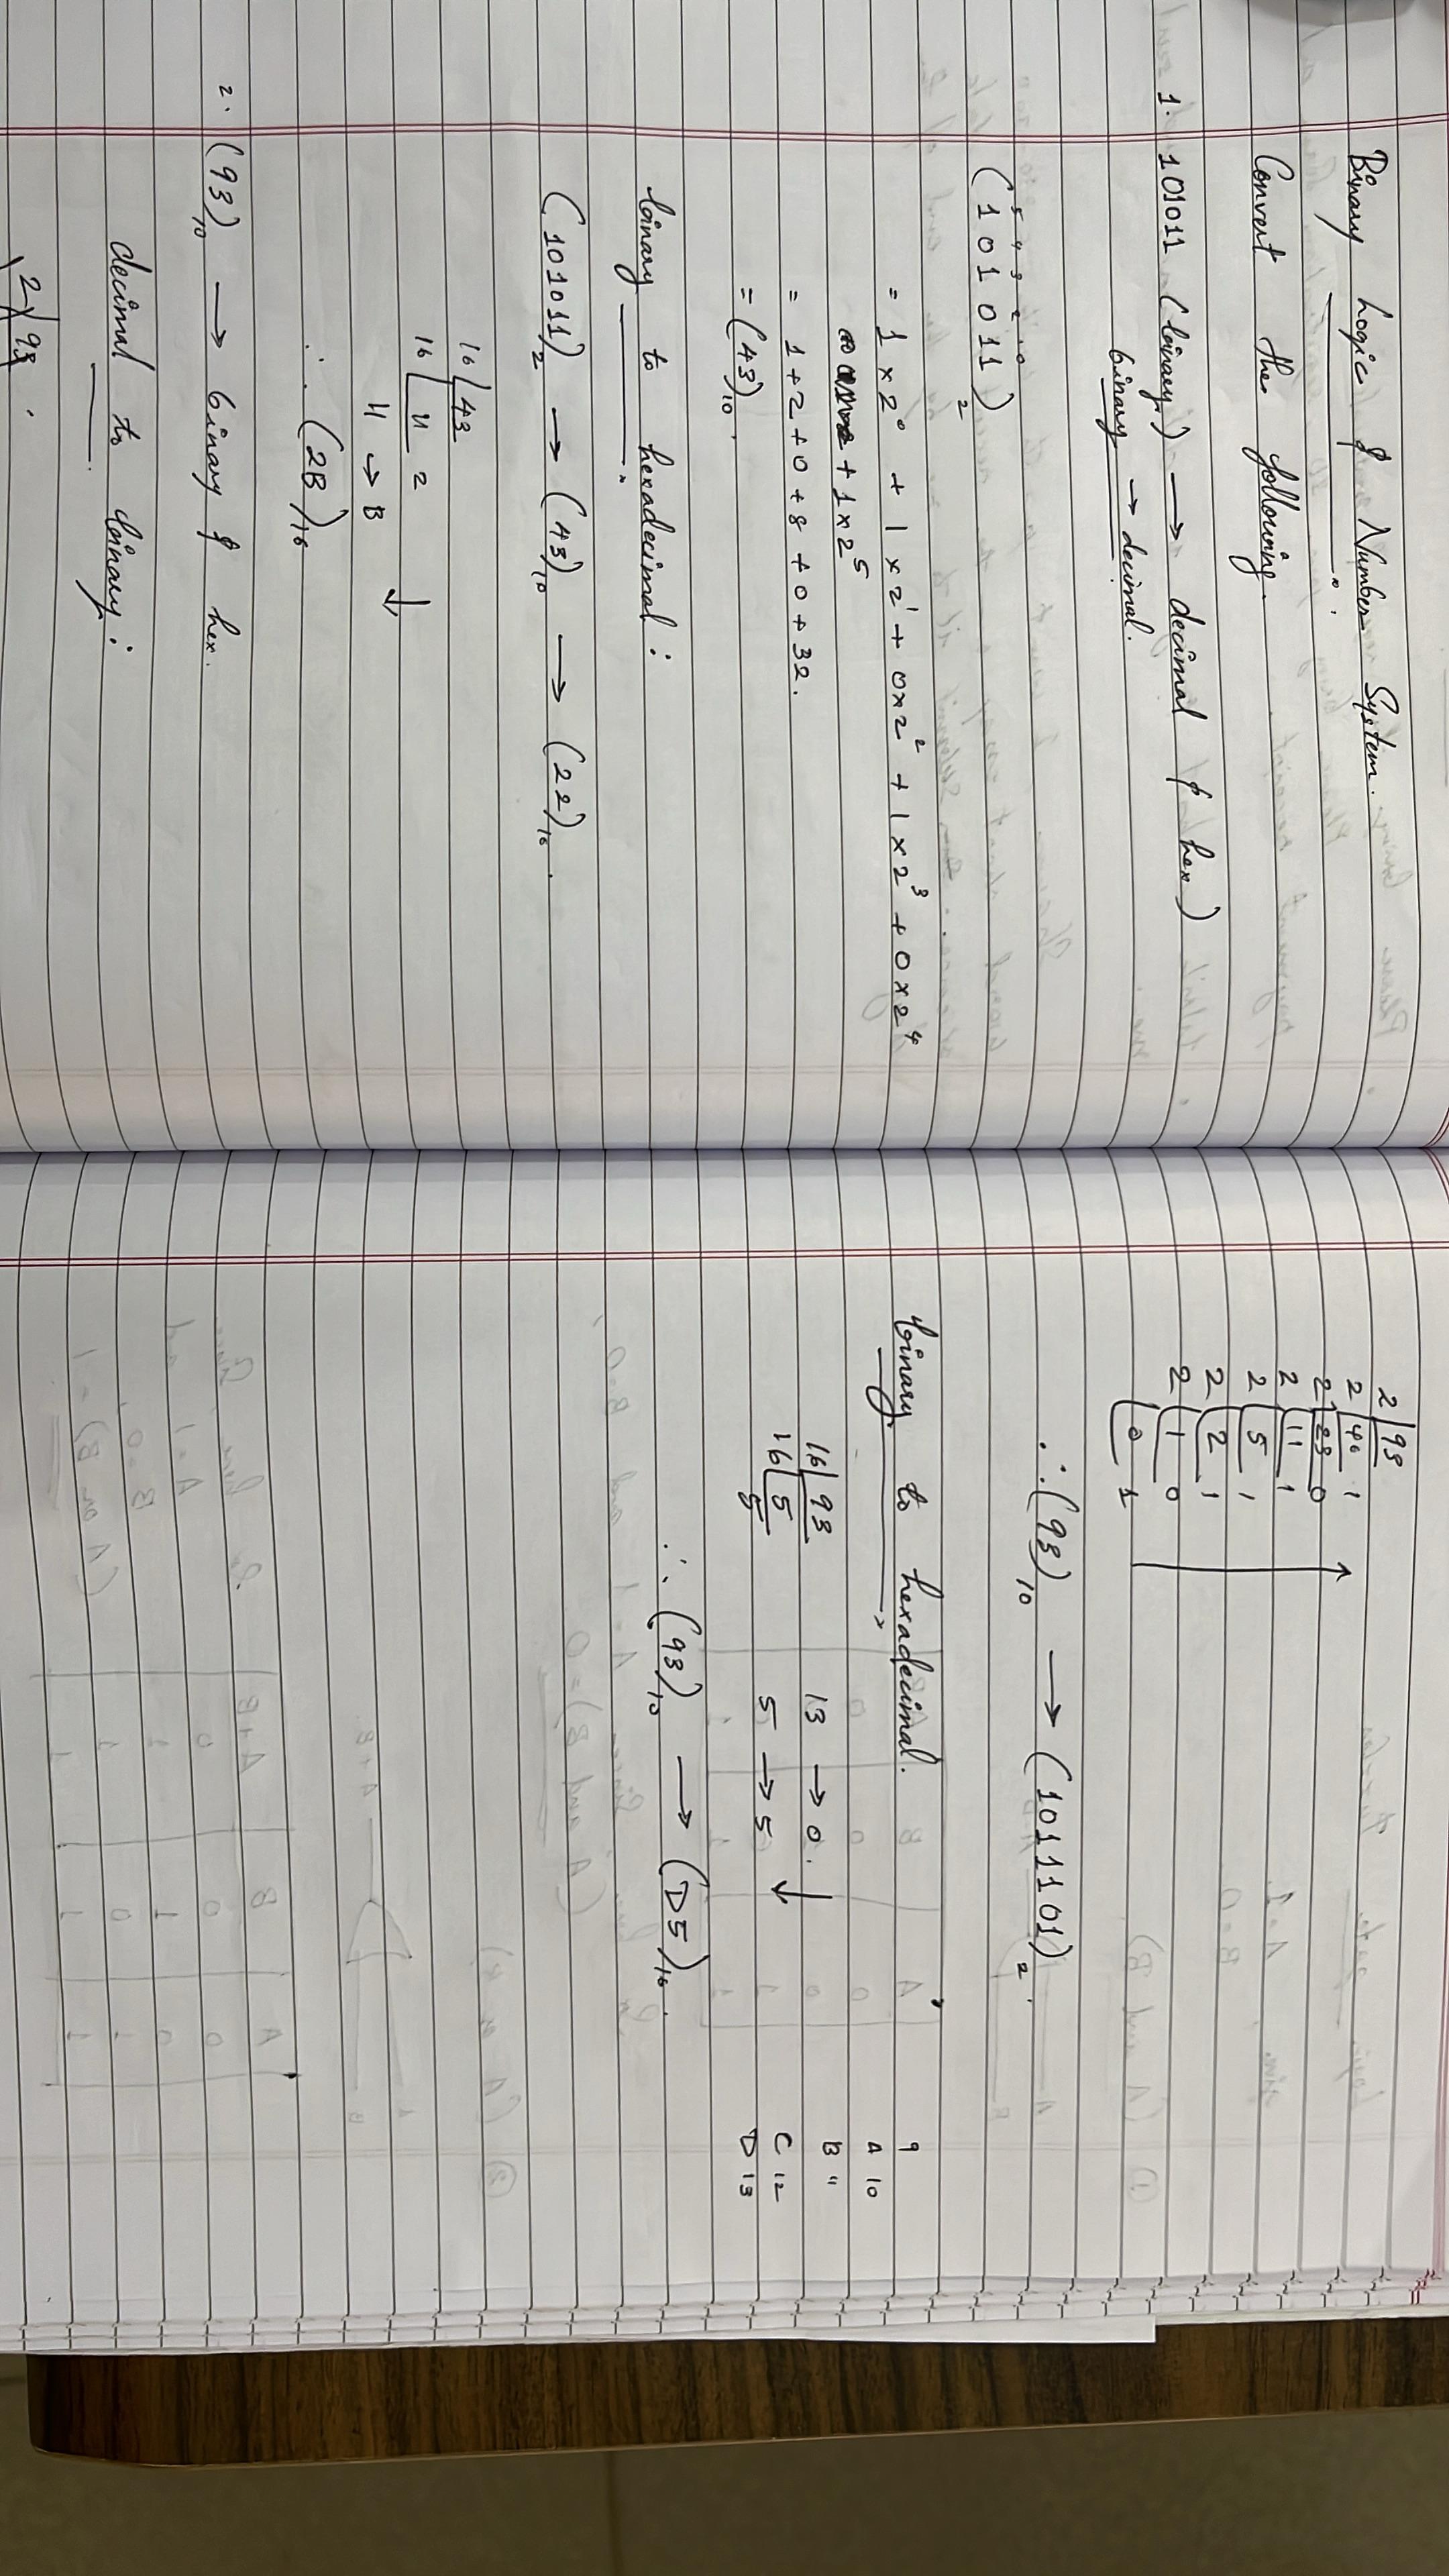 Binary Logic & Number System.
Convert the following.
1. 101011 (binary) → decimal & hex)
binary → decimal.
5 4 3 2 1 0
(1 0 1 0 1 1)2
= 1 x 2⁰ + 1 x 2¹ + 0x2² + 1 x 2³ + 0 x 2⁴
+ 1x2⁵
= 1 + 2 + 0 + 8 + 0 + 32.
= (43)10.
binary to hexadecimal :
(101011)2 → (43)10 → (22)16.
16 43
16 11 2
11 → B
∴ (2B)16
2. (93)10 → binary & hex.
decimal to binary :
2 93.
2 93
2 46 1
2 23 0
2 11 1
2 5 1
2 2 1
2 1 0
0 1
∴ (93)10 → (1011101)2.
binary to hexadecimal.
16 93 13 → 0.
16 5 5 → 5
5
∴ (93)10 → (D5)16.
9
A 10
B 11
C 12
D 13